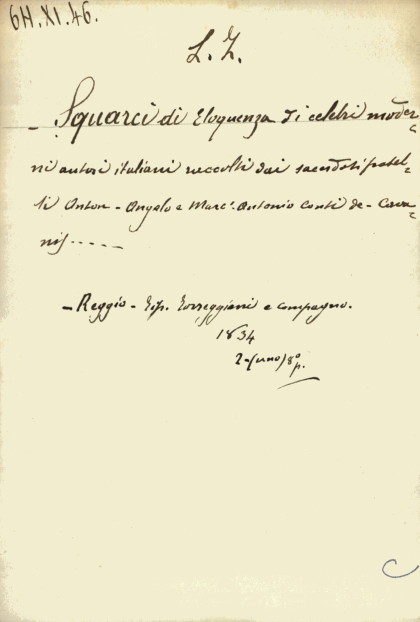 6H.XI.46.
L. Z.
- Squarci di Eloquenza di celebri moder=
ni autori italiani raccolti dai sacerdoti fratel=
li Anton-Angelo e Marc'Antonio Conti de-Cava=
nis.....
- Reggio - Tip. Torreggiani e compagno.
1834
8° p.